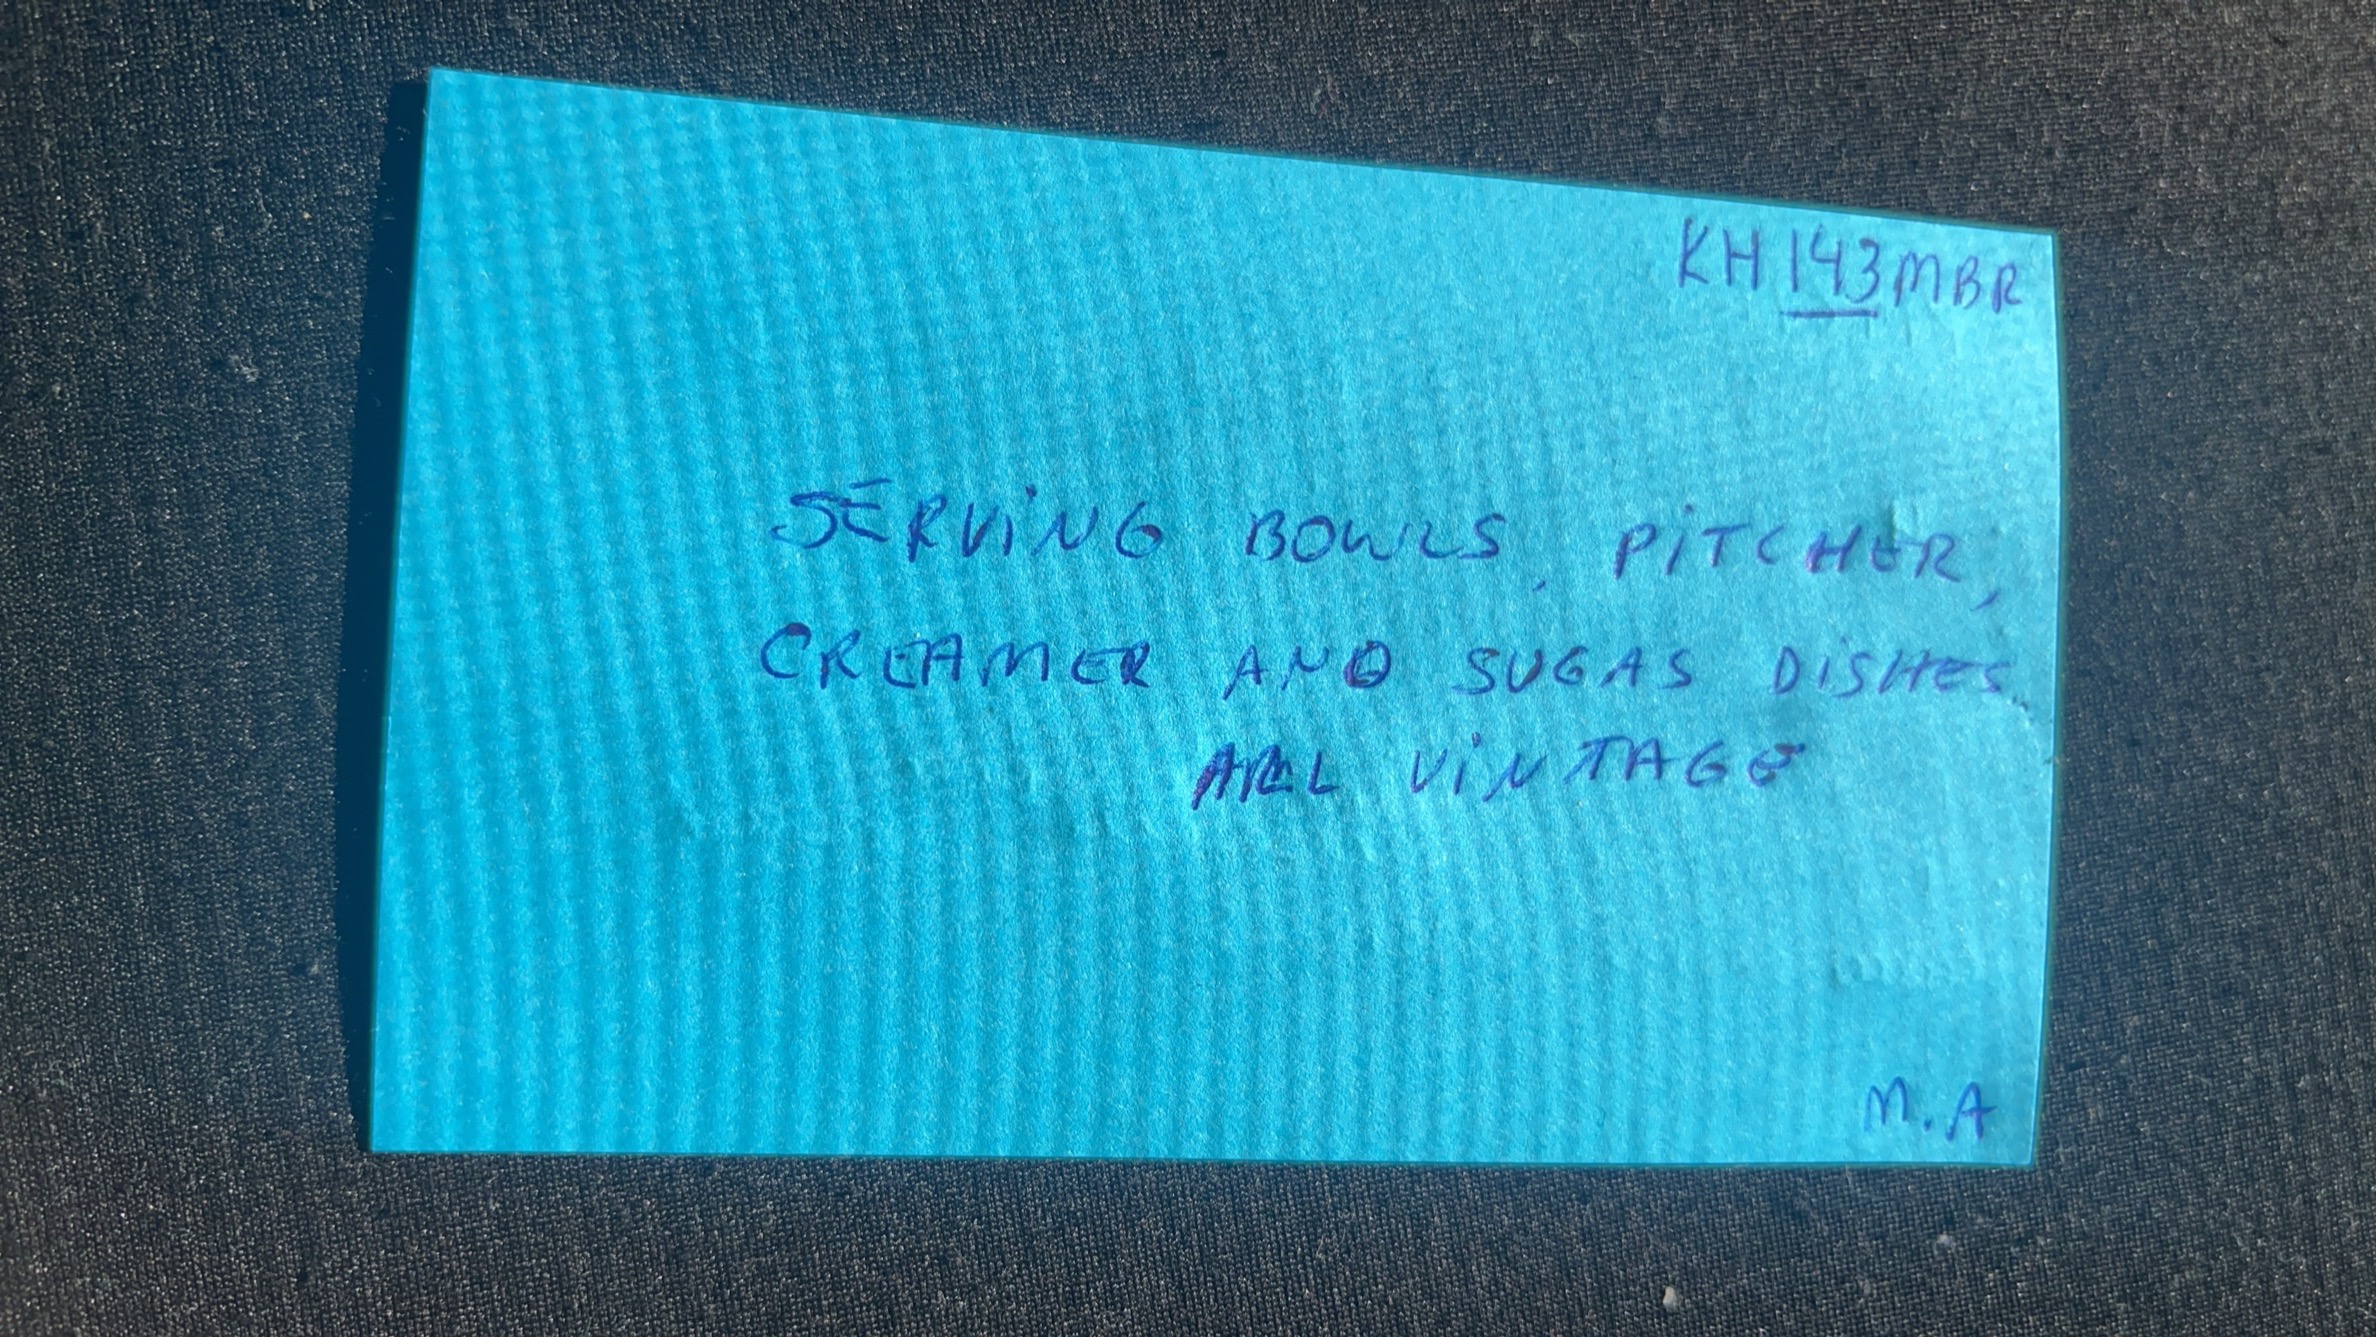 KH 143 MBR
SERViNG BOWLS, PiTCHER,
CREAMER AND SUGAS DiSHES.
ALL ViNTAGE
M.A